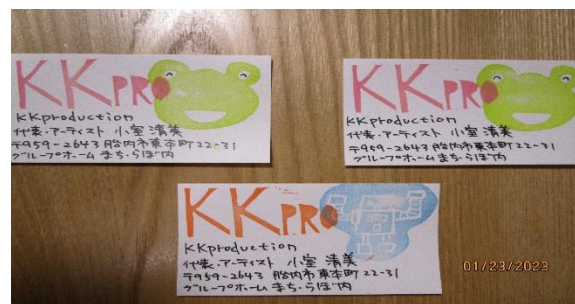 KKPRO
KKproduction
代表・アーティスト 小室 清美
〒959-2643 胎内市東本町22-31
グループホーム まち・らぼ内
KKPRO
KKproduction
代表・アーティスト 小室 清美
〒959-2643 胎内市東本町22-31
グループホーム まち・らぼ内
KKPRO
KKproduction
代表・アーティスト 小室 清美
〒959-2643 胎内市東本町22-31
グループホーム まち・らぼ内
01/23/2023